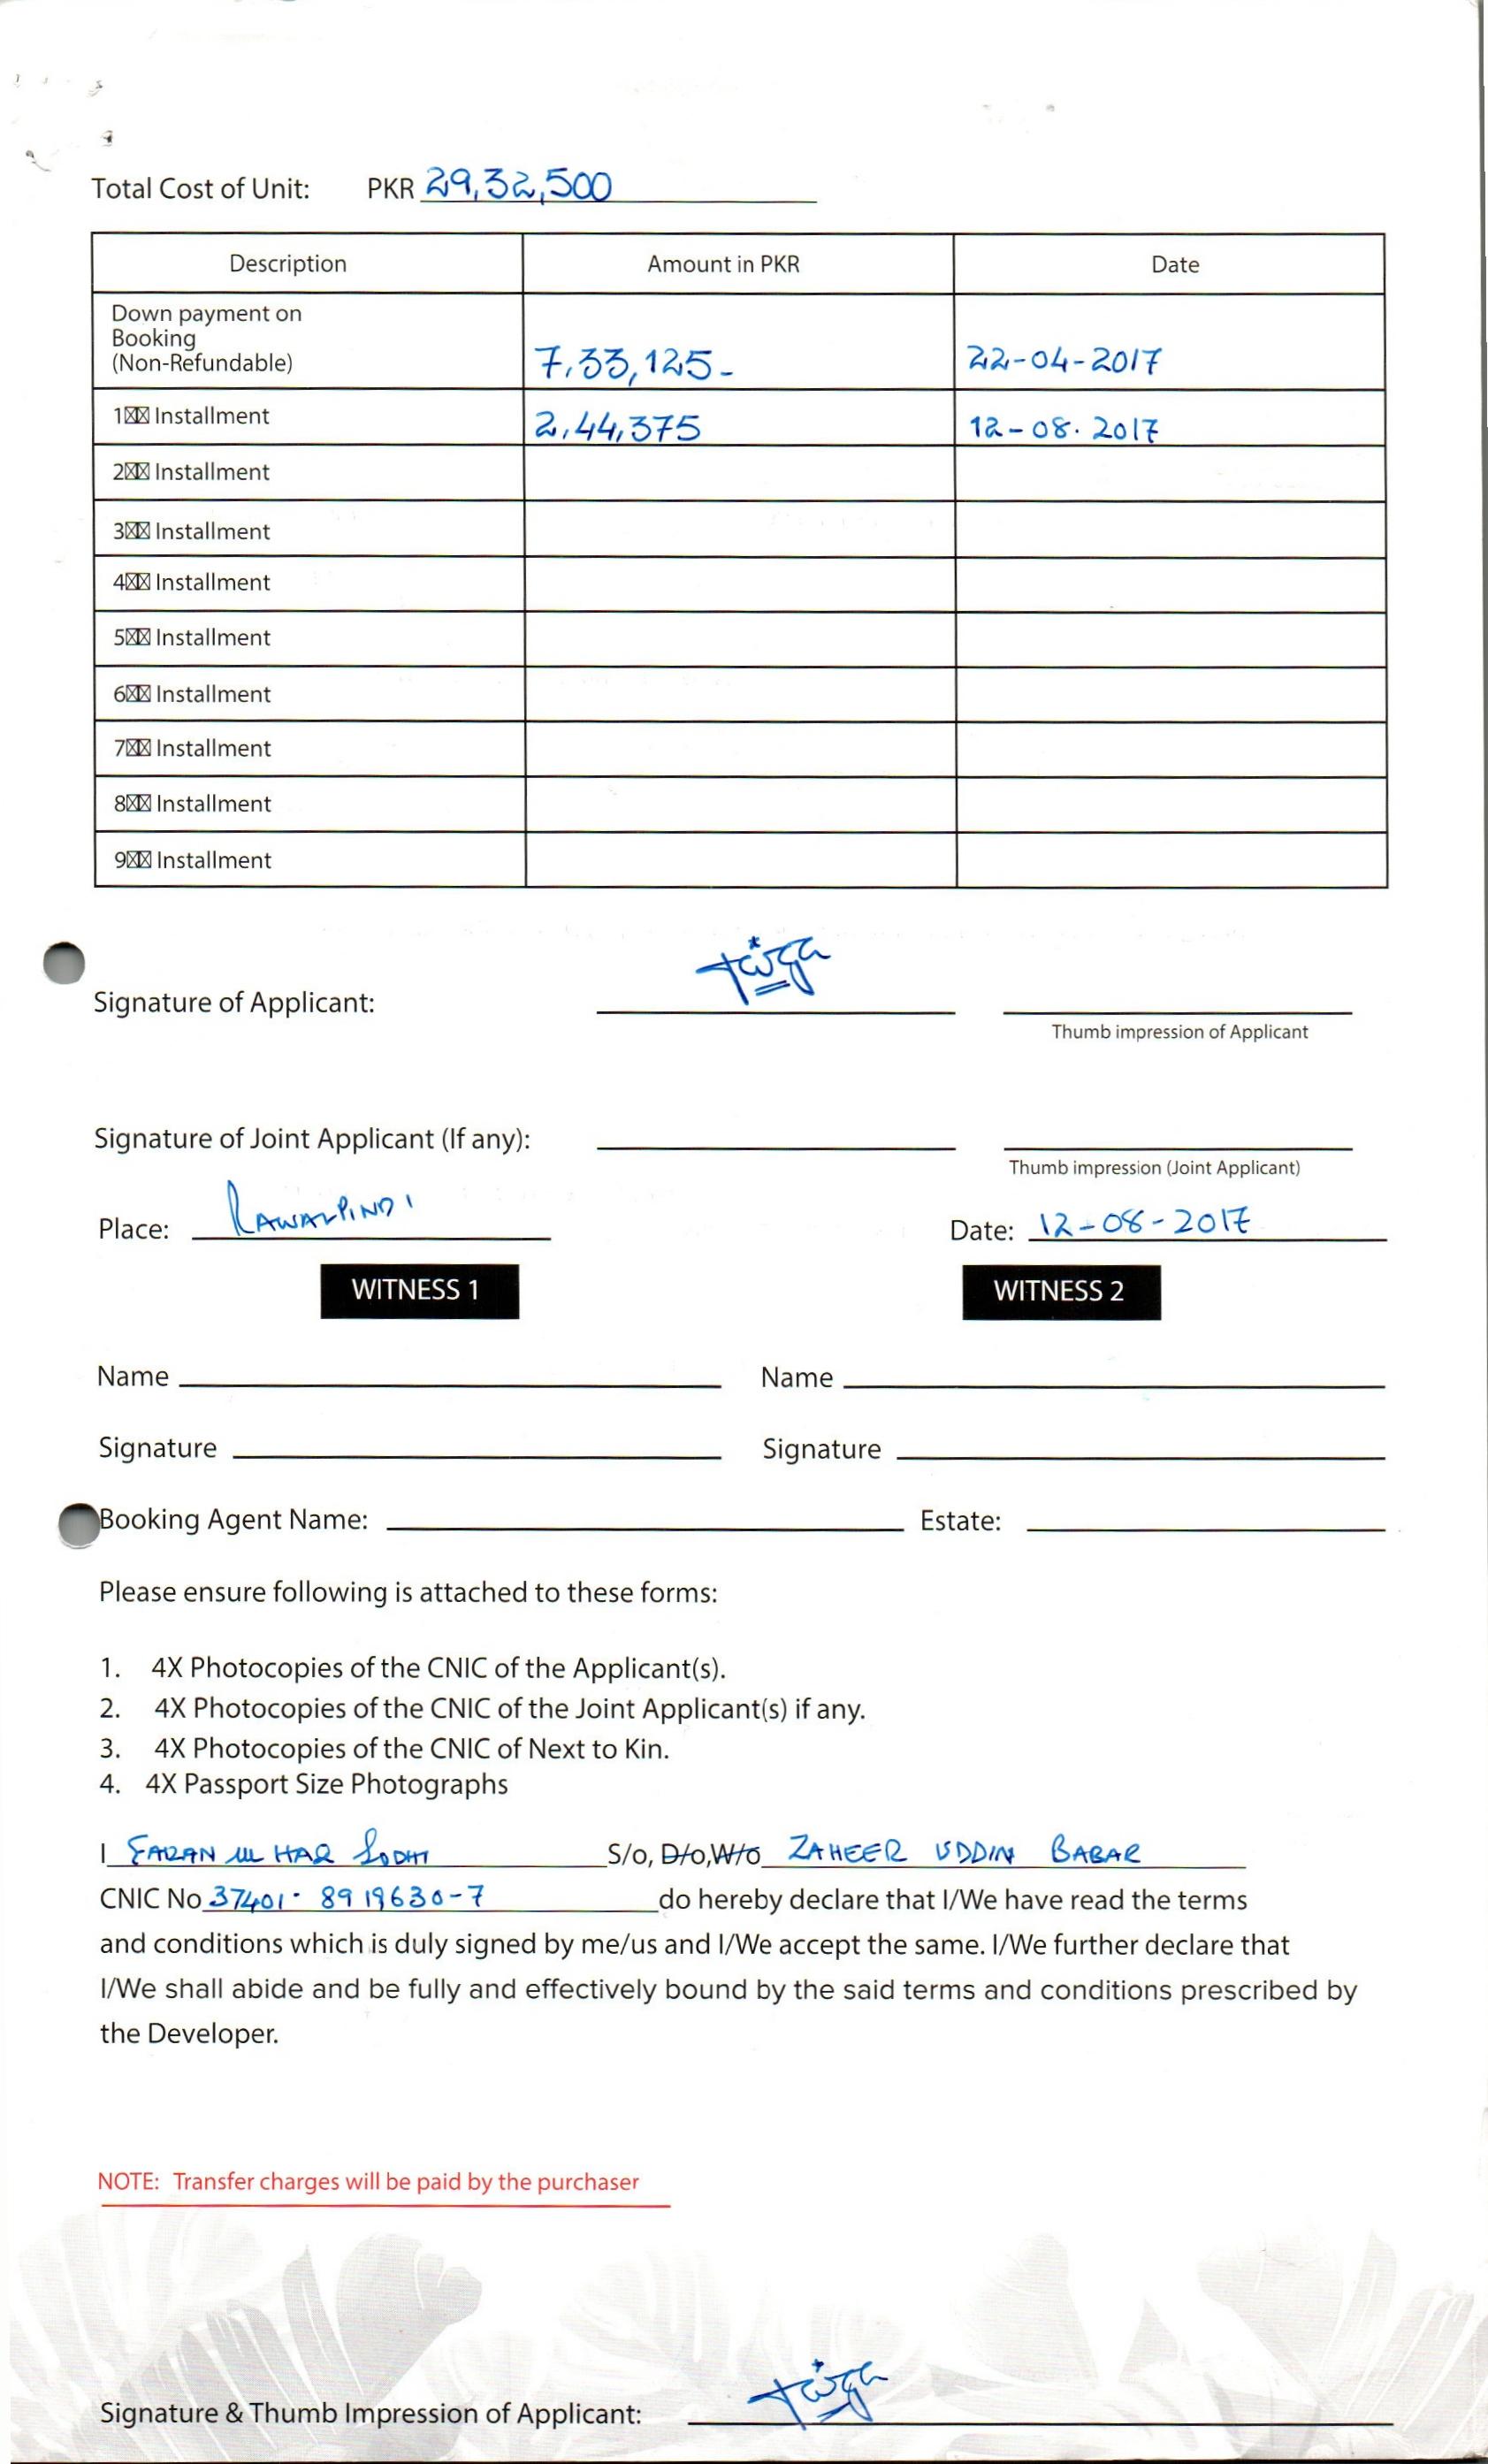 Total Cost of Unit: PKR 29,32,500
Description Amount in PKR Date
Down payment on
Booking
(Non-Refundable) 7,33,125- 22-04-2017
1 Installment 2,44,375 12-08.2017
2 Installment
3 Installment
4 Installment
5 Installment
6 Installment
7 Installment
8 Installment
9 Installment
Signature of Applicant:
Thumb impression of Applicant
Signature of Joint Applicant (If any):
Thumb impression (Joint Applicant)
Place: RAWALPINDI Date: 12-08-2017
WITNESS 1 WITNESS 2
Name Name
Signature Signature
Booking Agent Name: Estate:
Please ensure following is attached to these forms:
1. 4X Photocopies of the CNIC of the Applicant(s).
2. 4X Photocopies of the CNIC of the Joint Applicant(s) if any.
3. 4X Photocopies of the CNIC of Next to Kin.
4. 4X Passport Size Photographs
I FARAN UL HAQ LODHI S/o, D/o,W/o ZAHEER UDDIN BABAR
CNIC No 37401-8919630-7 do hereby declare that I/We have read the terms
and conditions which is duly signed by me/us and I/We accept the same. I/We further declare that
I/We shall abide and be fully and effectively bound by the said terms and conditions prescribed by
the Developer.
NOTE: Transfer charges will be paid by the purchaser
Signature & Thumb Impression of Applicant: